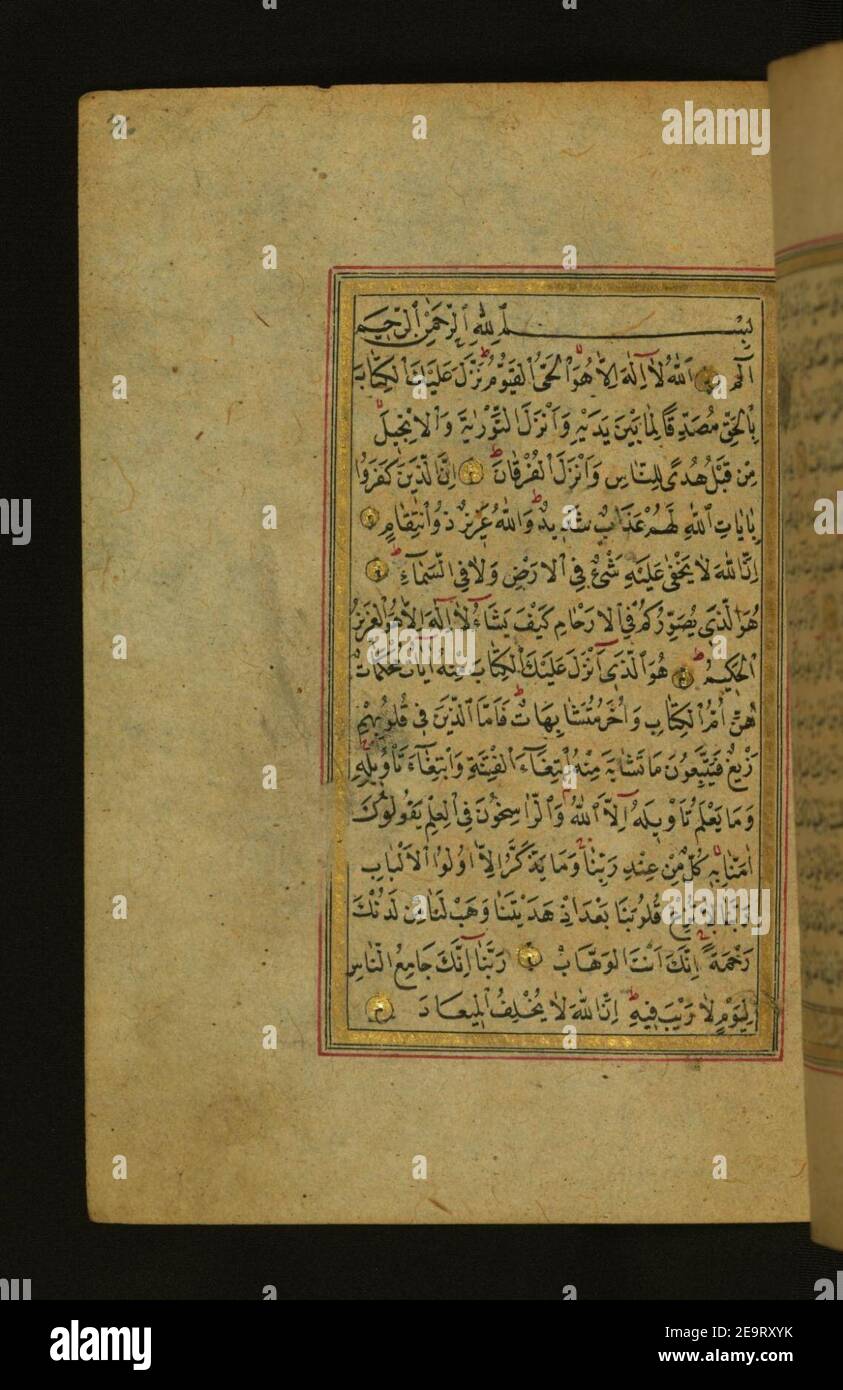 بِسْمِ ٱللّٰهِ ٱلرَّحْمٰنِ ٱلرَّحِيمِ
الٓمٓ ٱللّٰهُ لَآ اِلٰهَ اِلَّا هُوَ ٱلْحَيُّ ٱلْقَيُّومُ نَزَّلَ عَلَيْكَ ٱلْكِتَابَ
بِٱلْحَقِّ مُصَدِّقًا لِمَا بَيْنَ يَدَيْهِ وَاَنْزَلَ ٱلتَّوْرٰيةَ وَٱلْاِنْجِيلَ
مِنْ قَبْلُ هُدًى لِلنَّاسِ وَاَنْزَلَ ٱلْفُرْقَانَ اِنَّ ٱلَّذِينَ كَفَرُوا
بِاٰيَاتِ ٱللّٰهِ لَهُمْ عَذَابٌ شَدِيدٌ وَٱللّٰهُ عَزِيزٌ ذُو ٱنْتِقَامٍ
اِنَّ ٱللّٰهَ لَا يَخْفٰى عَلَيْهِ شَيْءٌ فِي ٱلْاَرْضِ وَلَا فِي ٱلسَّمَآءِ
هُوَ ٱلَّذِي يُصَوِّرُكُمْ فِي ٱلْاَرْحَامِ كَيْفَ يَشَآءُ لَآ اِلٰهَ اِلَّا هُوَ ٱلْعَزِيزُ
ٱلْحَكِيمُ هُوَ ٱلَّذِٓي اَنْزَلَ عَلَيْكَ ٱلْكِتَابَ مِنْهُ اٰيَاتٌ مُحْكَمَاتٌ
هُنَّ اُمُّ ٱلْكِتَابِ وَاُخَرُ مُتَشَابِهَاتٌ فَاَمَّا ٱلَّذِينَ فِي قُلُوبِهِمْ
زَيْغٌ فَيَتَّبِعُونَ مَا تَشَابَهَ مِنْهُ ٱبْتِغَآءَ ٱلْفِتْنَةِ وَٱبْتِغَآءَ تَاْوِيلِهِ
وَمَا يَعْلَمُ تَاْوِيلَهُٓ اِلَّا ٱللّٰهُ وَٱلرَّاسِخُونَ فِي ٱلْعِلْمِ يَقُولُونَ
اٰمَنَّا بِهِ كُلٌّ مِنْ عِنْدِ رَبِّنَا وَمَا يَذَّكَّرُ اِلَّا اُولُوا ٱلْاَلْبَابِ
رَبَّنَا لَا تُزِغْ قُلُوبَنَا بَعْدَ اِذْ هَدَيْتَنَا وَهَبْ لَنَا مِنْ لَدُنْكَ
رَحْمَةً اِنَّكَ اَنْتَ ٱلْوَهَّابُ رَبَّنَآ اِنَّكَ جَامِعُ ٱلنَّاسِ
لِيَوْمٍ لَا رَيْبَ فِيهِ اِنَّ ٱللّٰهَ لَا يُخْلِفُ ٱلْمِيعَادَ
alamy
Image ID: 2E9RXYK
www.alamy.com